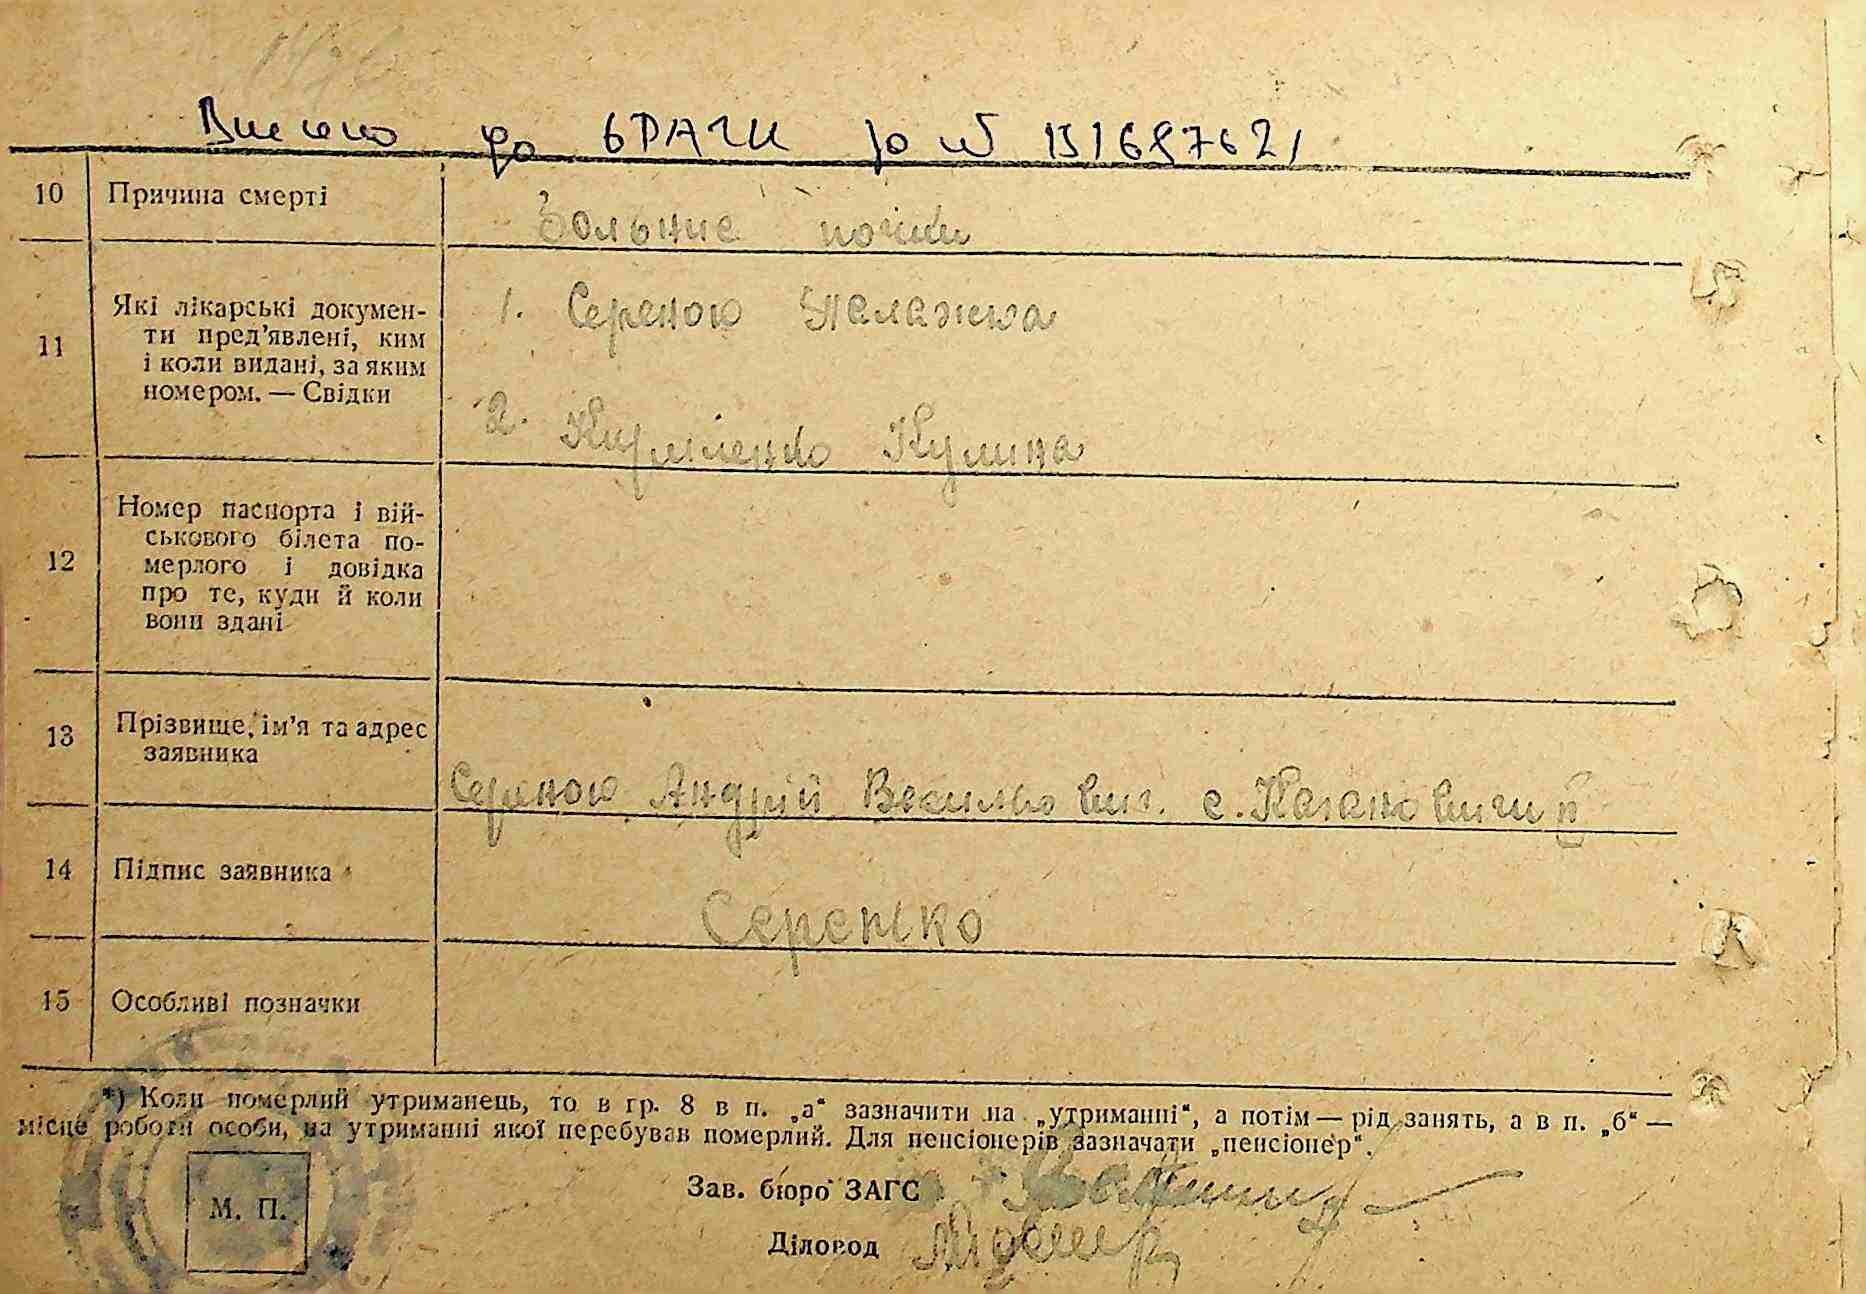 Внесено до ДРАЦС за № 151687621
10 Причина смерті
Больние почки
11 Які лікарські докумен-
ти пред’явлені, ким
і коли видані, за яким
номером. — Свідки
1. Палажка
2. Кулина
12 Номер паспорта і вій-
ськового білета по-
мерлого і довідка
про те, куди й коли
вони здані
13 Прізвище, ім’я та адрес
заявника
Андрій Васильович. с. Каганович II
14 Підпис заявника
Серенко
15 Особливі позначки
*) Коли померлий утриманець, то в гр. 8 в п. „а“ зазначити на „утриманні“, а потім — рід занять, а в п. „б“ —
місце роботи особи, на утриманні якої перебував померлий. Для пенсіонерів зазначати „пенсіонер“.
Зав. бюро ЗАГС
М. П.
Діловод